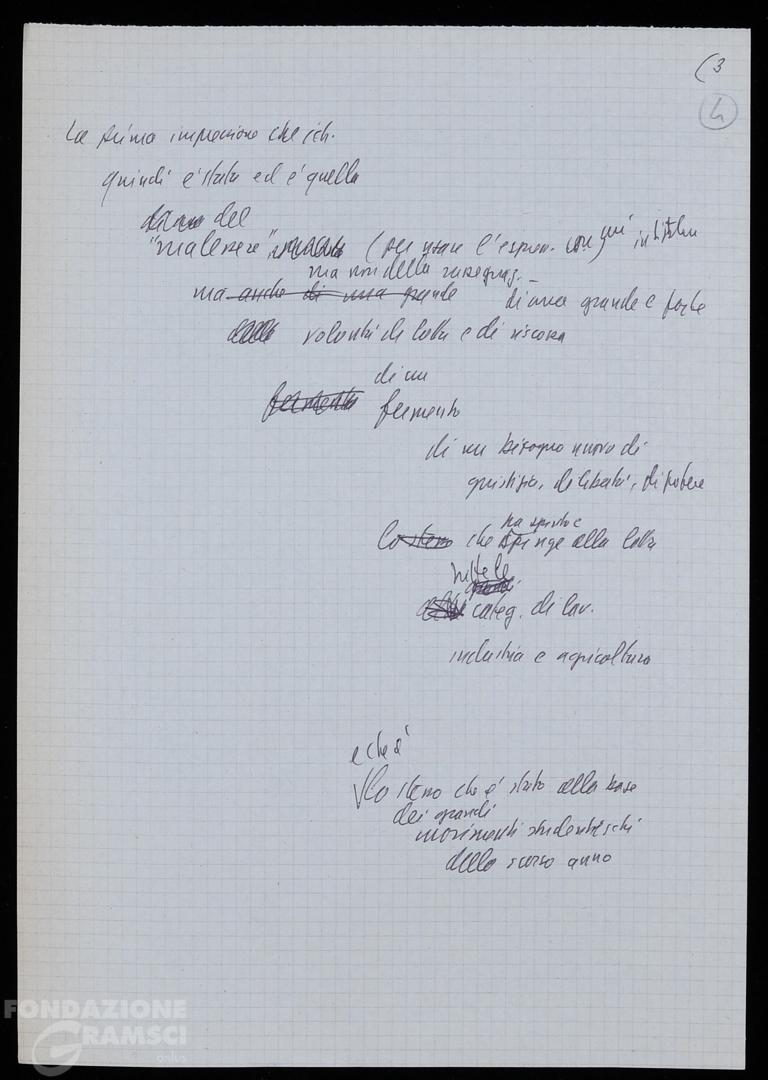 (3
4
La prima impressione che ich.
quindi è stata ed è quella
del
"malessere" (per usare l'espress. con cui
ma non della rassegnaz. –
ma anche di una grande di una grande e forte
volontà di lotta e di riscossa
di un
fermento fermento
di un bisogno nuovo di
giustizia, di libertà, di potere
ha spinto e
Lo stesso che spinge alla lotta
tutte le
categ. di lav.
industria e agricoltura
e che è
lo stesso che è stato alla base
dei grandi
movimenti studenteschi
dello scorso anno
FONDAZIONE
GRAMSCI
onlus